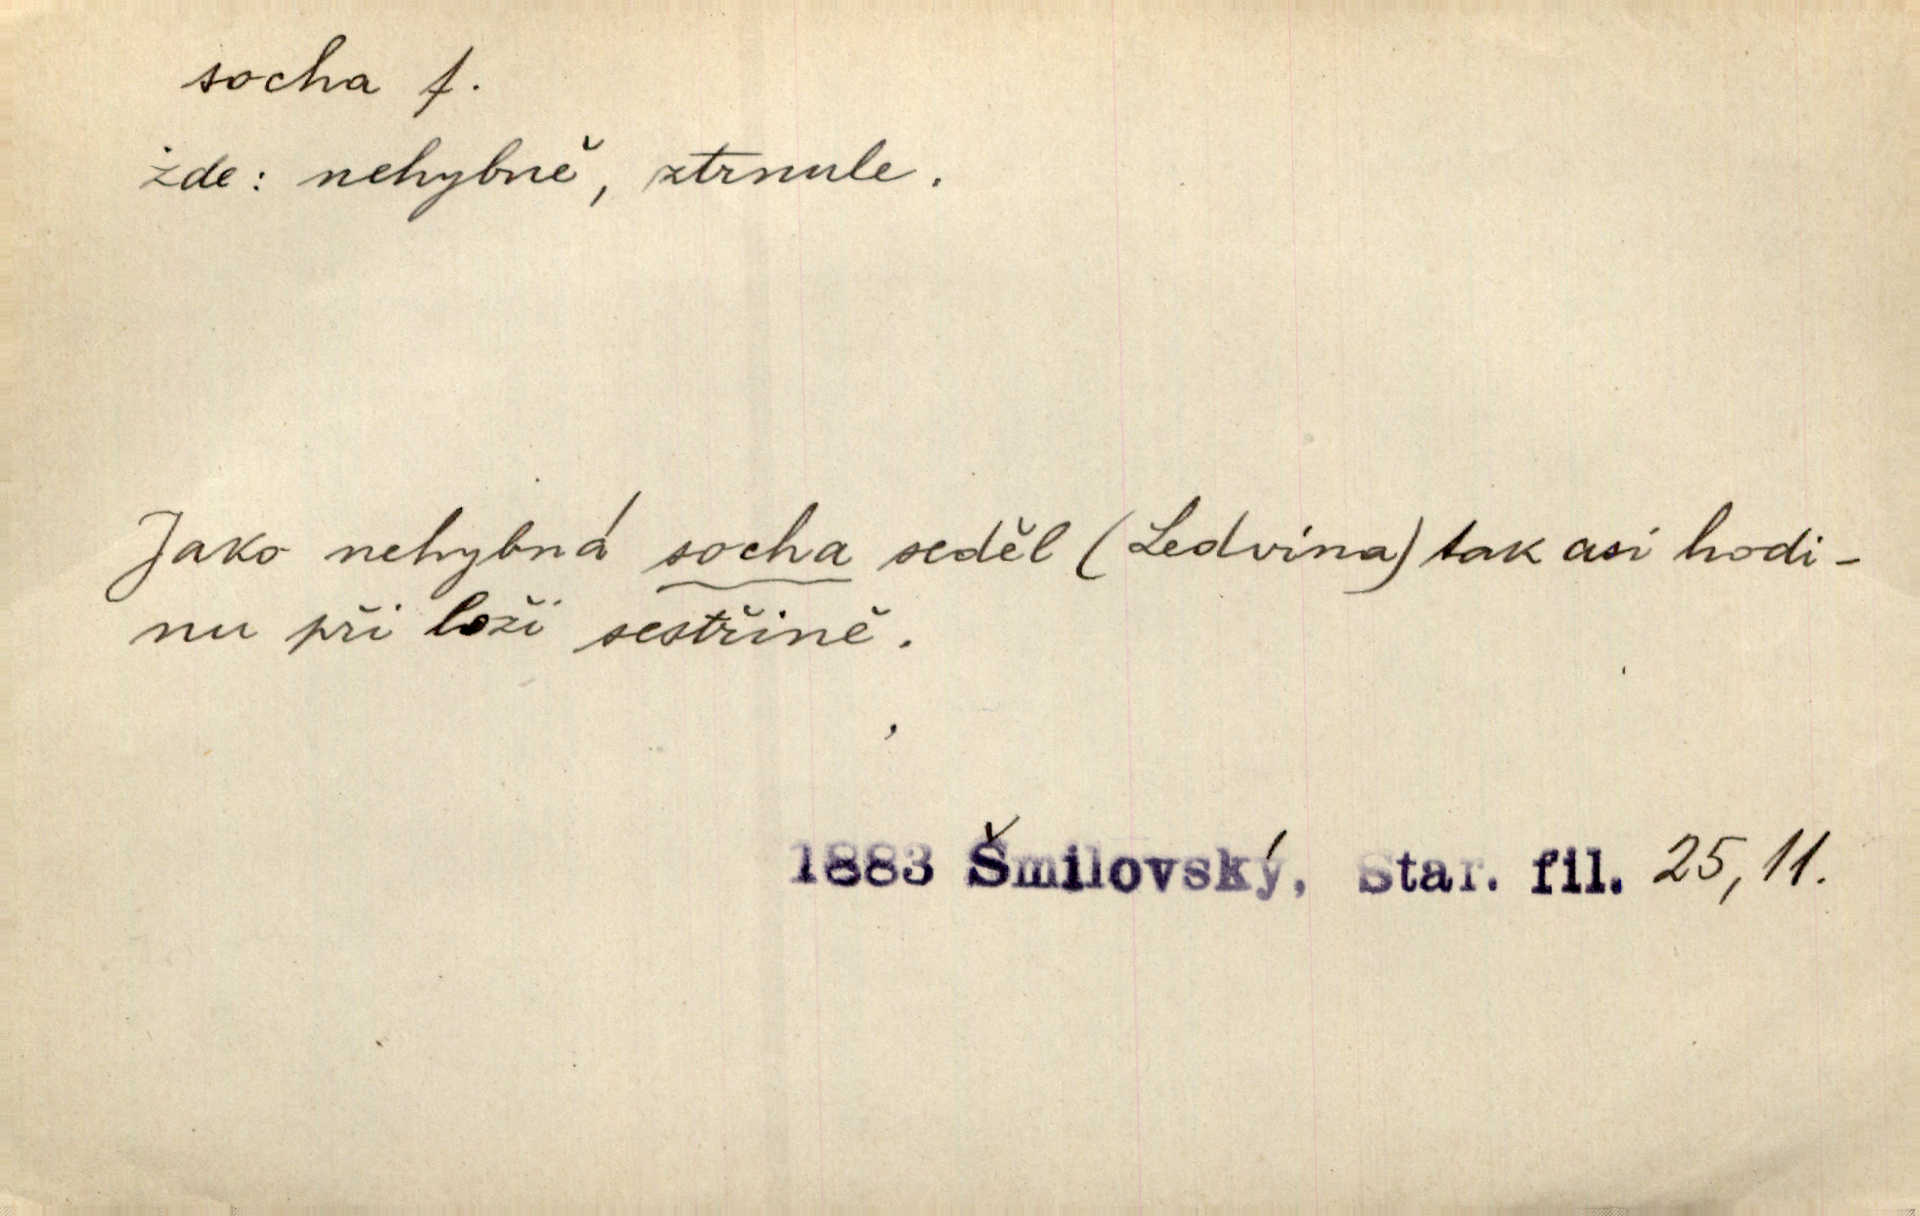 socha f.
zde: nehybně, ztrnule.
Jako nehybná socha seděl (Ledvina) tak asi hodi-
nu při loži sestřině.
1883 Šmilovský, Star. fil. 25, 11.